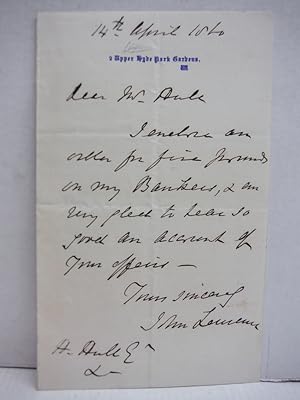 14th April 1860
2 Upper Hyde Park Gardens.
Dear Mr Hull
I enclose an
order for five pounds
on my Bankers, & am
very glad to hear so
good an account of
your affairs —
Yours sincerely
John Lawrence
H. Hull Esq